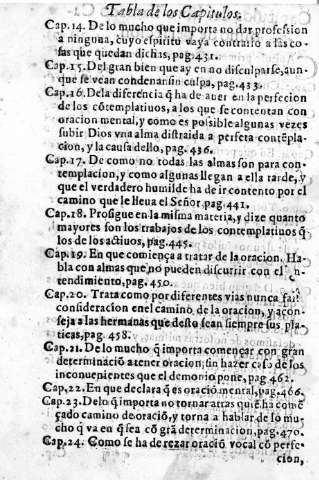 Tabla de los Capitulos.
Cap. 14. De lo mucho que importa no dar profession
a ninguna, cuyo espiritu vaya contrario a las co-
sas que quedan dichas, pag. 431.
Cap. 15. Del gran bien que ay en no disculparse, aun-
que se vean condenar sin culpa, pag. 433.
Cap. 16. De la diferencia q̃ ha de auer en la perfecion
de los cõtemplatiuos, a los que se contentan con
oracion mental, y como es poisible algunas vezes
subir Dios vna alma distraida a perfeta contẽpla-
cion, y la causa dello, pag. 436.
Cap. 17. De como no todas las almas son para con-
templacion, y como algunas llegan a ella tarde, y
que el verdadero humilde ha de ir contento por el
camino que le lleua el Señor pag. 441.
Cap. 18. Prosigue en la misma materia, y dize quanto
mayores son los trabajos de los contemplatiuos q̃
los de los actiuos, pag. 445.
Cap. 19. En que comiença a tratar de la oracion. Ha-
bla con almas que no pueden discurrir con el en-
tendimiento, pag. 450.
Cap. 20. Trata como por diferentes vias nunca falta
consideracion en el camino de la oracion, y acon-
seja a las hermanas que desto sean siempre sus pla-
ticas, pag. 458.
Cap. 21. De lo mucho q̃ importa començar con gran
determinaciõ a tener oracion, sin hazer caso de los
inconuenientes que el demonio pone, pag 462.
Cap. 22. En que declara q̃ es oraciõ mental, pag. 466.
Cap. 23. De lo q̃ importa no tornar atras quiẽ ha come-
çado camino de oraciõ, y torna a hablar de lo mu-
cho q̃ va en q̃ sea cõ grã determinacion, pag. 470.
Cap. 24. Como se ha de rezar oraciõ vocal cõ perfe-
cion,